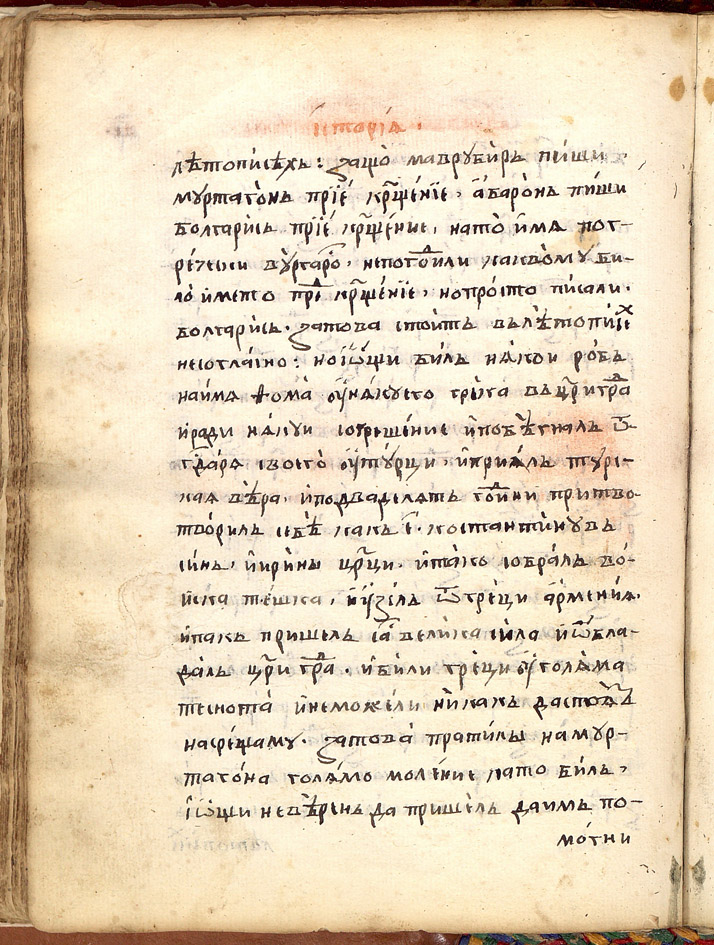 їсторїѧ .
лѣтописѣхь : защо маврꙋбирь пиши .
мꙋртагонь прїе крщенїе , а баронь пиши
болгарись прїе крщение , като има пог-
рѣчески вꙋргаро , непогодили каквомꙋ би-
ло името пред крщенїе , но просто писали .
болгарись . затова стоить вьлѣтописех
несогласно : но їѡщи биль нѧкои робь
на имѧ ѳома ꙋ нѧкуего грька вь цри града
и ради нѧкуи согрешение и побѣгналь ѿ
гдарѧ своего ꙋ тꙋрци , и приѧль тꙋрс-
каѧ вѣра . и по два десѧть години притво-
твориль себѣ какь є . костантинꙋвь
синь , и ирины црци . и тако собраль во-
иска тешка , и ꙋзѣль ѿ грѣци армениѧ .
и пакь пришель са велика сила и ѡбла-
даль цри град . и били грѣци ꙋ голѧма
теснота и не можели никакь да стоѧть
насрещамꙋ . затова пратили на мꙋр-
тагона голѧмо моление като биль ,
їѡщи невѣрень да пришель да имь по-
могни